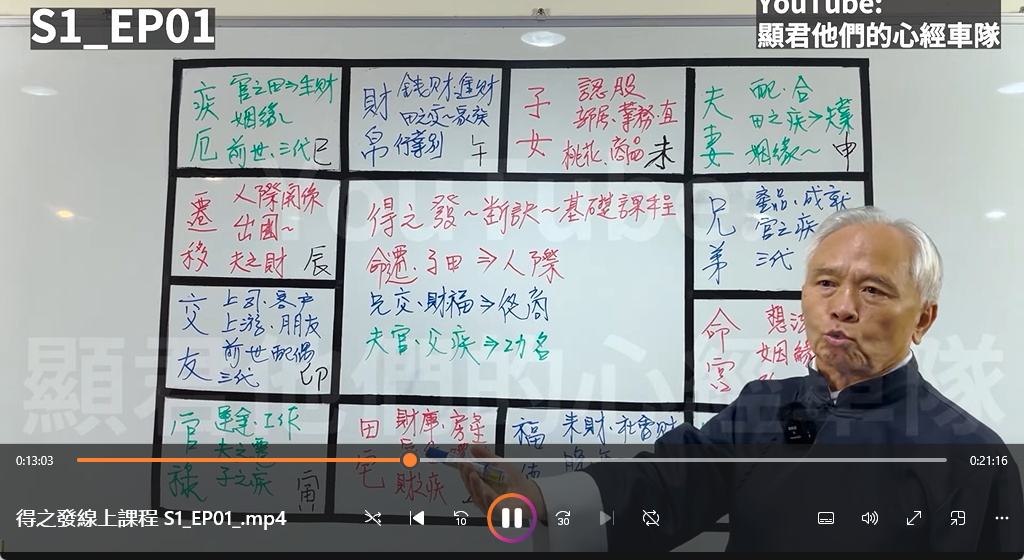 S1_EP01
YouTube:
顯君他們的心經車隊
疾厄
官之田⇒生財
姻緣~
前世·三代
巳
財帛
錢財進財
田之交~家族
行事別
午
子女
認股
部屬·業務·直
桃花·商品
未
夫妻
配·合
田之疾⇒
姻緣~
申
遷移
人際関係
出國~
夫之財
辰
得之發~斷訣~基礎課程
命遷·子田⇒人際
兄交·財福⇒從商
夫官·父疾⇒功名
兄弟
產品·成就
官之疾
三代
交友
上司·客戶
上游·朋友
前世配偶
三代
卯
命宮
想法
姻緣
官祿
運途·工作
夫之遷
子之疾
寅
田宅
財庫·房屋
財之疾
福
來財·社會財
YouTube:
顯君他們的心經車隊
0:13:03
0:21:16
得之發線上課程 S1_EP01_.mp4
10
30